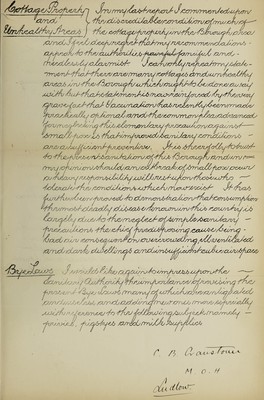 Cottage Property and Unhealthy Areas
In my last report I commented upon
the discreditable condition of much of
the cottage property in the Borough area
and I feel deep regret that my recommendations
appear to the authorities painful and
needlessly alarmist I
ment that there are many cottages and unhealthy
areas in the Borough which ought to be done away
with but that statement is now reinforced by the very
grave fact that Vaccination has recently been made
practically optional and the common plea advanced
for neglecting this elementary precaution against
small pox is that improved sanitary conditions
are a sufficient preventive. It is sheer folly to trust
to the present sanitation of this Borough and in
my opinion should an outbreak of small pox occur
a heavy responsibility will rest upon those who
tolerate the conditions which now exist It has
further been proved to demonstration that consumption
the most deadly disease known in this country is
largely due to the neglect of simple sanitary
precautions the chief predisposing cause being
bad air consequent on overcrowding, ill ventilated
and dark dwellings and insufficient cubic air space
Bye Laws
I would like again to impress upon the
Sanitary Authority the importance of revising the
present Bye Laws many of which are antiquated
and useless and adding new ones more especially
with reference to the following subjects namely
privies, pigstyes and milk supplies
C. B. Cranstoun
M. O. H
Ludlow